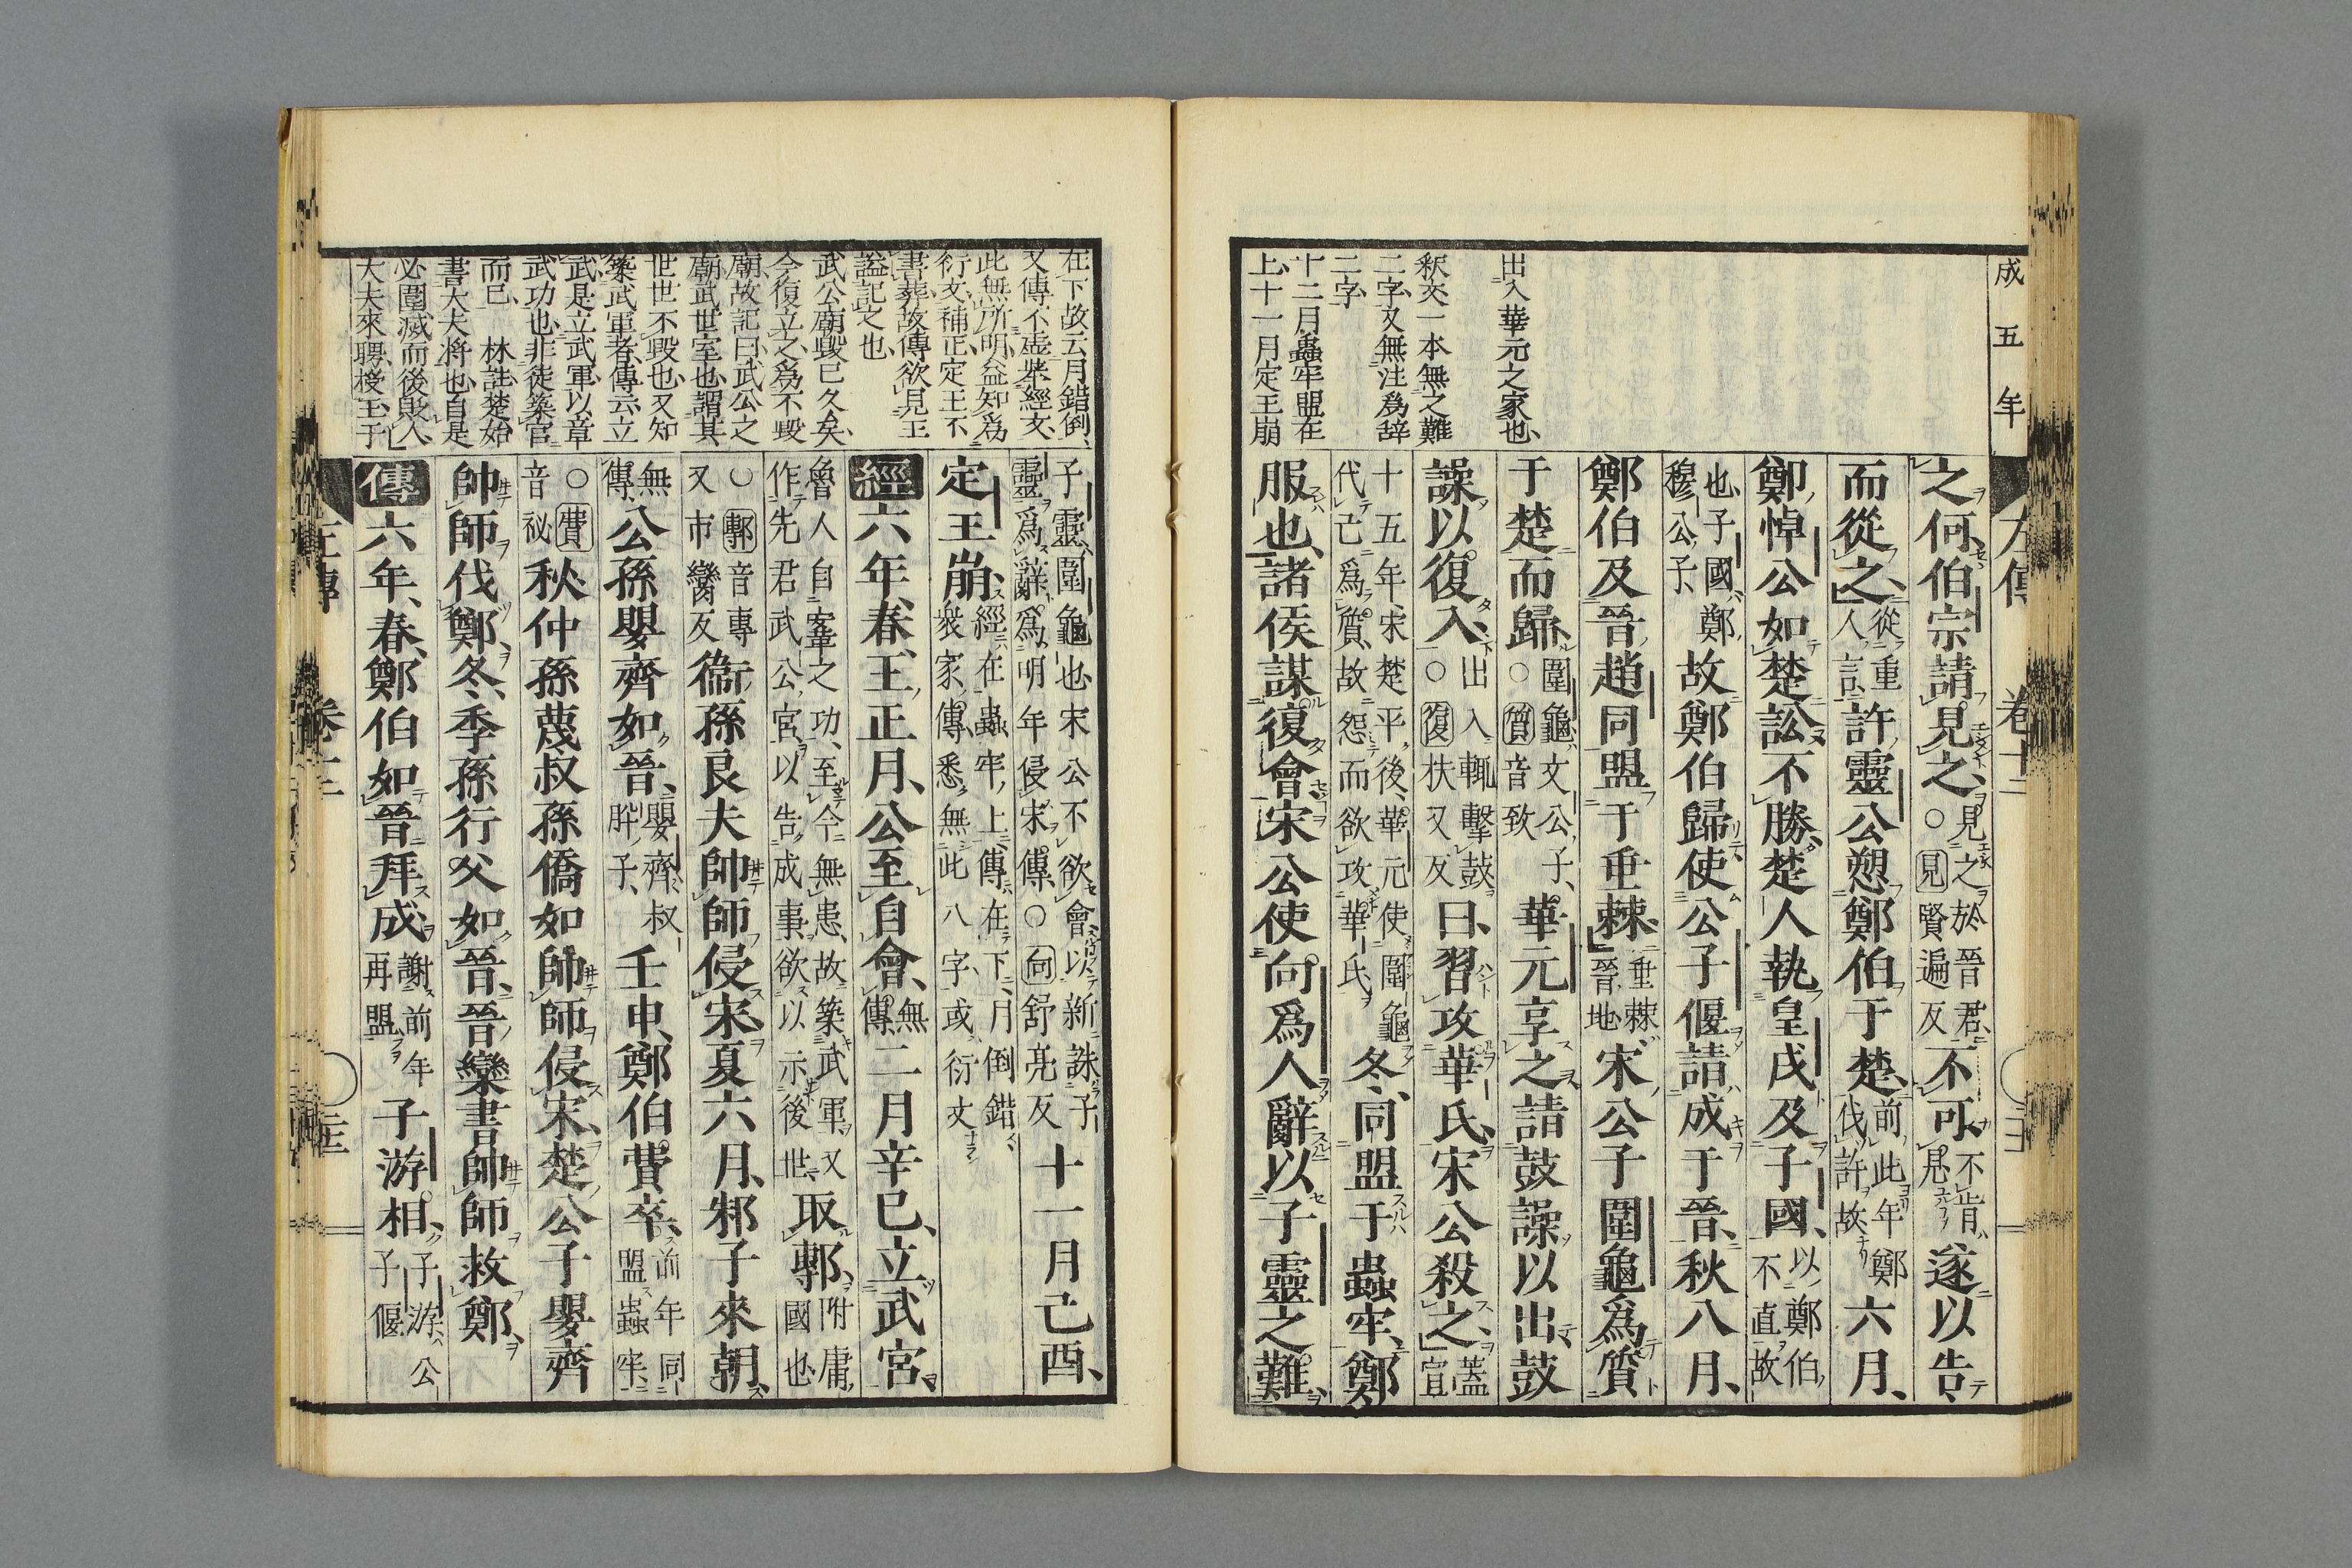 成五年
左傳 卷十二
出入華元之家也
釈文一本無之難
二字又無注爲辞
二字
十二月蟲牢盟在
上十一月定王崩
之何伯宗請見之見之於晉君○見賢遍反不可不肯見遂以告
而從之從重人言許靈公愬鄭伯于楚前此年鄭伐許故六月
鄭悼公如楚訟不勝楚人執皇戌及子國以鄭伯不直故
也子國鄭穆公子故鄭伯歸使公子偃請成于晉秋八月
鄭伯及晉趙同盟于垂棘垂棘晉地宋公子圍龜爲質
于楚而歸圍龜文公子○質音致華元享之請鼓譟以出鼓
譟以復入出入輒擊鼓○復扶又反曰習攻華氏宋公殺之蓋宣
十五年宋楚平後華元使圍龜代己爲質故怨而欲攻華氏冬同盟于蟲牢鄭
服也諸侯謀復會宋公使向爲人辭以子靈之難
在下故云月錯倒
又傳不虚擧經文
此無所明益知爲
衍文補正定王不
書葬故傳欲見王
謚記之也
武公廟毀已久矣
今復立之爲不毀
廟故記曰武公之
廟武世室也謂其
世世不毀也又知
築武軍者傳云立
武是立武軍以章
武功也非徒築宮
而已 林註楚始
書大夫將也自是
必圍滅而後貶人
大夫來聘椄王子
子靈圍龜也宋公不欲會以新誅子靈爲辭爲明年侵宋傳○向舒亮反十一月己酉
定王崩經在蟲牢上傳在下月倒錯衆家傳悉無此八字或衍文
經六年春王正月公至自會無傳二月辛巳立武宮
魯人自鞌之功至今無患故築武軍又作先君武公宮以告成事欲以示後世取鄟附庸國也
○鄟音專又市臠反衞孫良夫帥師侵宋夏六月邾子來朝
無傳公孫嬰齊如晉嬰齊叔肸子壬申鄭伯費卒前年同盟蟲牢
○費音祕秋仲孫蔑叔孫僑如帥師侵宋楚公子嬰齊
帥師伐鄭冬季孫行父如晉晉欒書帥師救鄭
傳六年春鄭伯如晉拜成謝前年再盟子游相子游公子偃